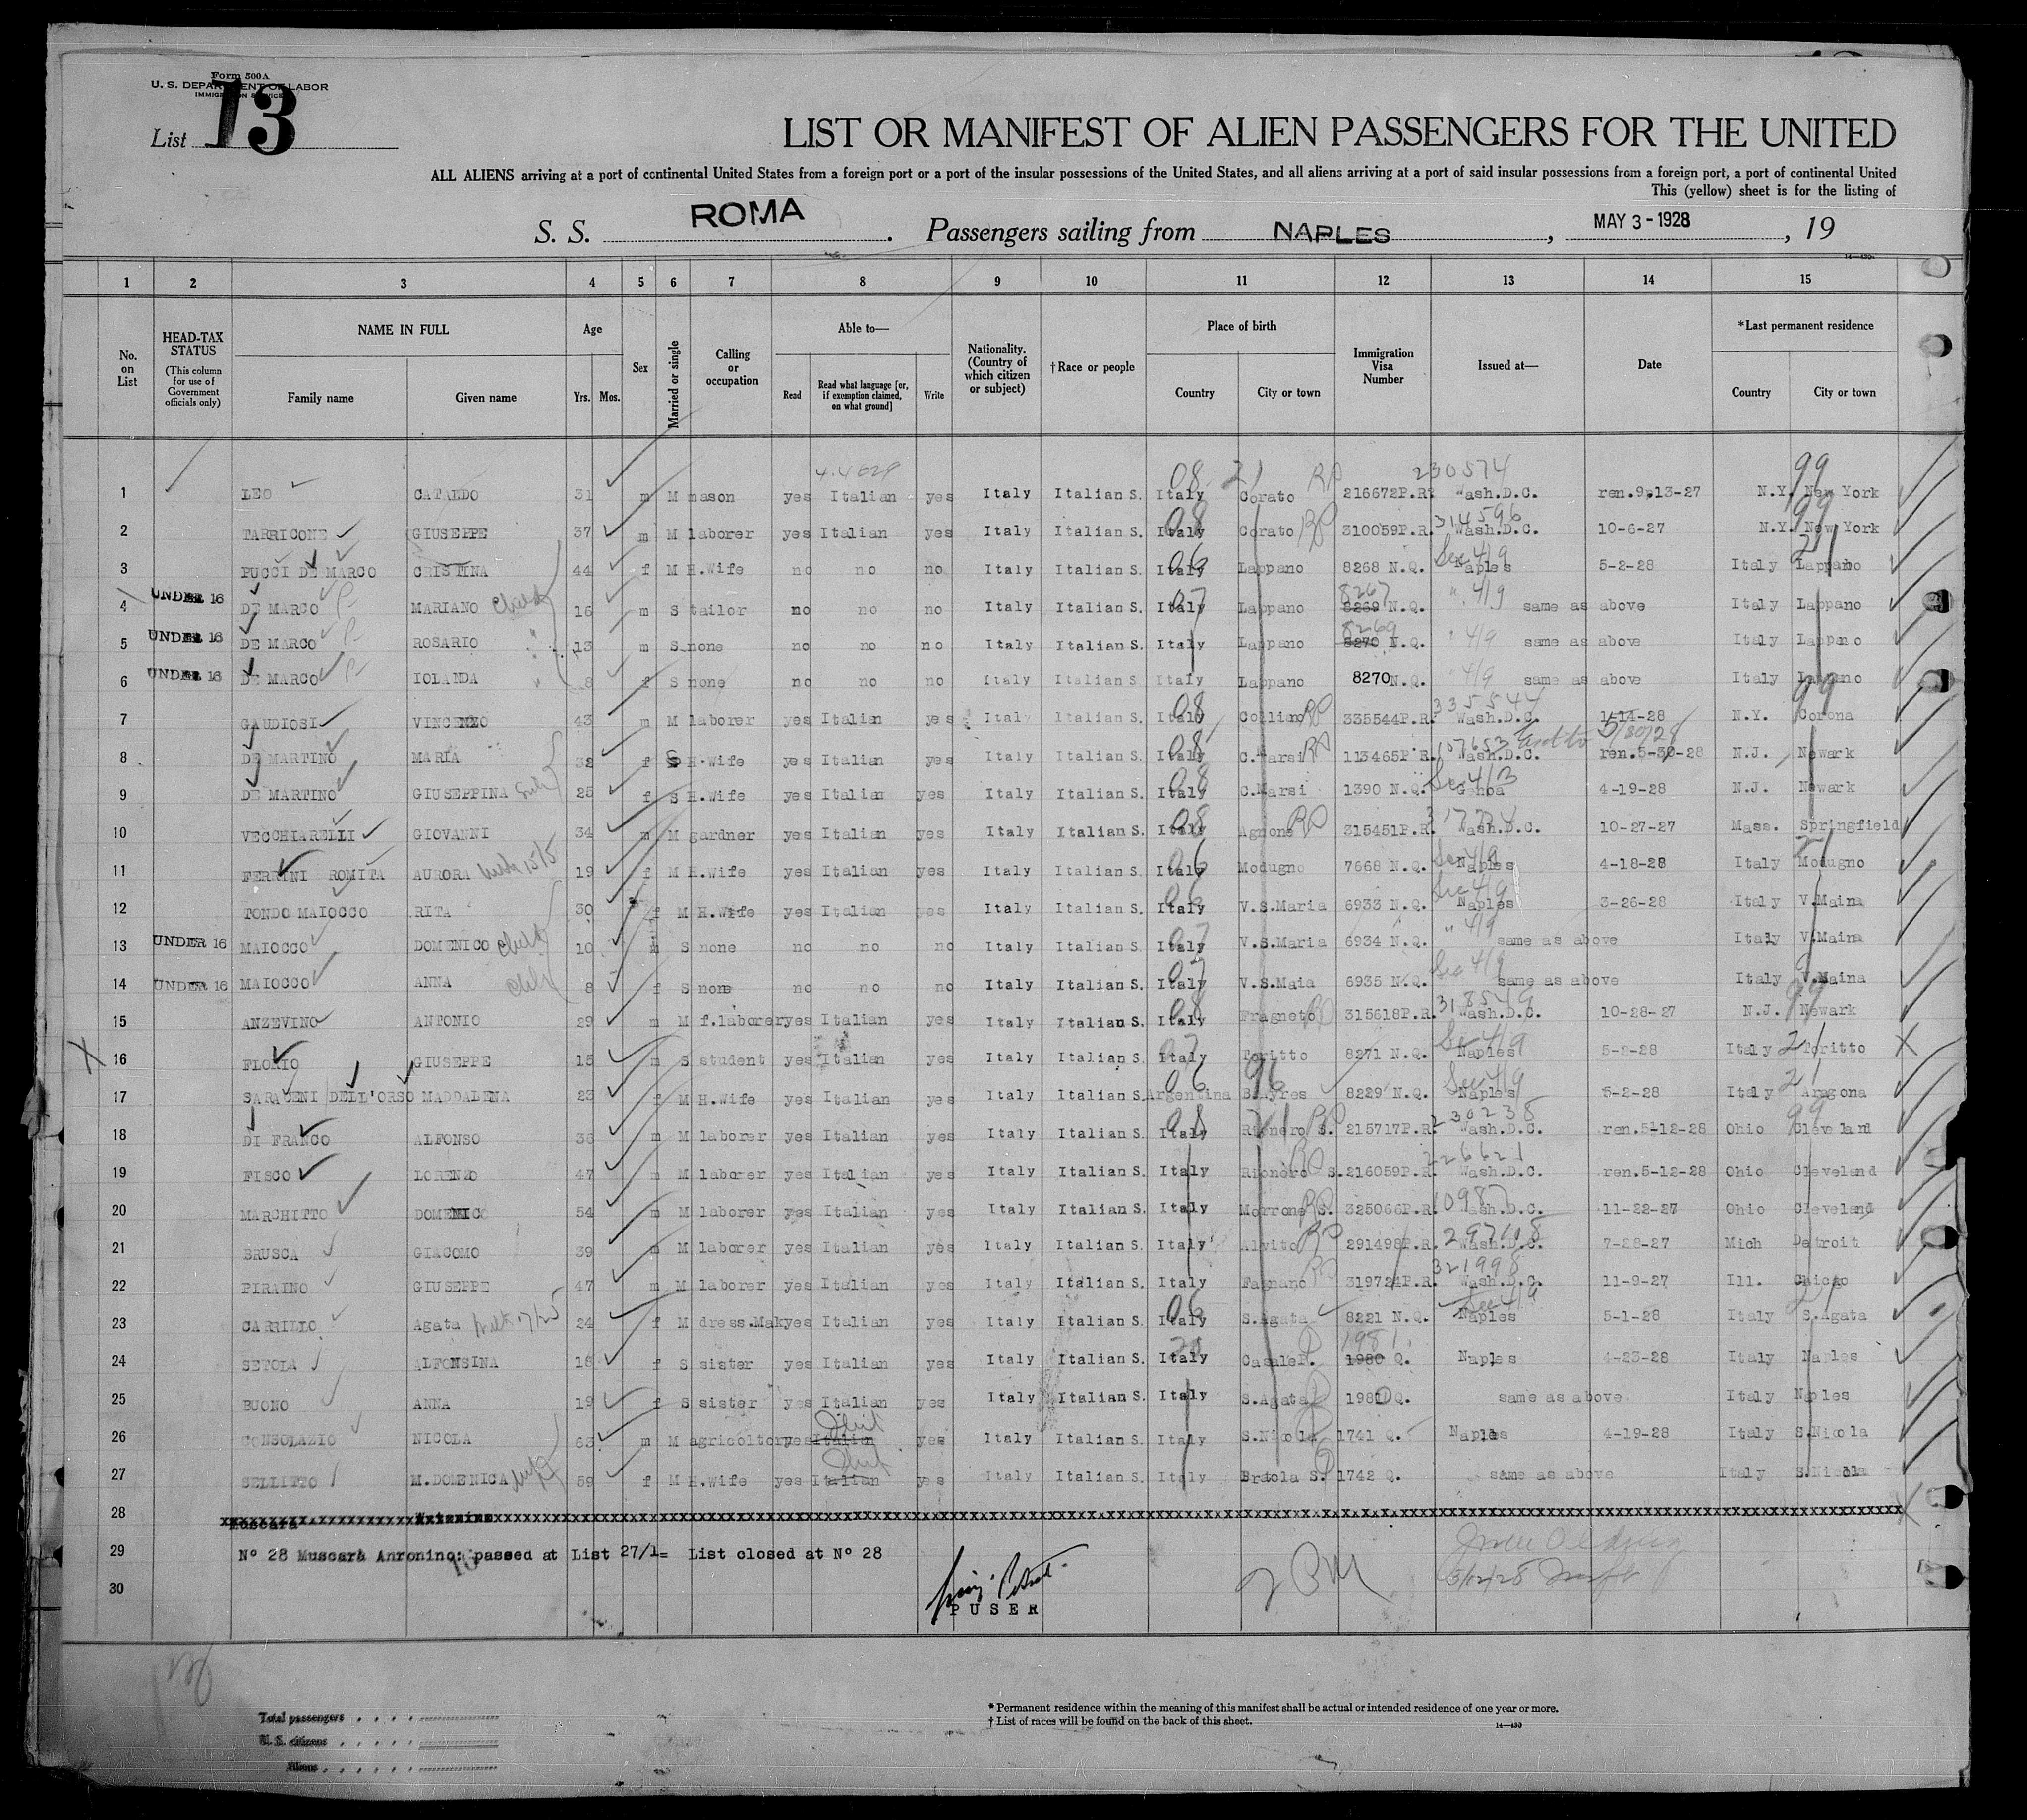 Form 500A
U. S. DEPARTMENT OF LABOR
IMMIGRATION SERVICE
List 13
LIST OR MANIFEST OF ALIEN PASSENGERS FOR THE UNITED
ALL ALIENS arriving at a port of continental United States from a foreign port or a port of the insular possessions of the United States, and all aliens arriving at a port of said insular possessions from a foreign port, a port of continental United
This (yellow) sheet is for the listing of
S. S. ROMA . Passengers sailing from NAPLES , MAY 3 - 1928 , 19
1 2 3 4 5 6 7 8 9 10 11 12 13 14 15
No. on List
HEAD-TAX STATUS (This column for use of Government officials only)
NAME IN FULL Family name Given name
Age Yrs. Mos.
Sex
Married or single
Calling or occupation
Able to— Read Read what language [or, if exemption claimed, on what ground] Write
Nationality. (Country of which citizen or subject)
†Race or people
Place of birth Country City or town
Immigration Visa Number
Issued at—
Date
*Last permanent residence Country City or town
1 LEO CATALDO 31 m M mason yes Italian yes Italy Italian S. Italy Corato 216672P.R. Wash.D.C. ren.9.13-27 N.Y. New York
2 TARRICONE GIUSEPPE 37 m M laborer yes Italian yes Italy Italian S. Italy Corato 310059P.R. Wash.D.C. 10-6-27 N.Y. New York
3 PUCCI DE MARCO CRISTINA 44 f M H.Wife no no no Italy Italian S. Italy Lappano 8268 N.Q. Naples 5-2-28 Italy Lappano
4 UNDER 16 DE MARCO MARIANO child 16 m S tailor no no no Italy Italian S. Italy Lappano 8267 8269 N.Q. same as above Italy Lappano
5 UNDER 16 DE MARCO ROSARIO 13 m S none no no no Italy Italian S. Italy Lappano 8269 8270 N.Q. same as above Italy Lappano
6 UNDER 16 DE MARCO IOLANDA 8 f S none no no no Italy Italian S. Italy Lappano 8270 N.Q. same as above Italy Lappano
7 GAUDIOSI VINCENZO 43 m M laborer yes Italian yes Italy Italian S. Italy Colliano 335544P.R. 335544 Wash.D.C. 1-14-28 N.Y. Corona
8 DE MARTINO MARIA 32 f S H.Wife yes Italian yes Italy Italian S. Italy C.Marsi 113465P.R. Wash.D.C. ren.5-30-28 N.J. Newark
9 DE MARTINO GIUSEPPINA 25 f S H.Wife yes Italian yes Italy Italian S. Italy C.Marsi 1390 N.Q. Genoa 4-19-28 N.J. Newark
10 VECCHIARELLI GIOVANNI 34 m M gardner yes Italian yes Italy Italian S. Italy Agnone 315451P.R. Wash.D.C. 10-27-27 Mass. Springfield
11 FERRINI ROMITA AURORA 19 f M H.Wife yes Italian yes Italy Italian S. Italy Modugno 7668 N.Q. Naples 4-18-28 Italy Modugno
12 TONDO MAIOCCO RITA 30 f M H.Wife yes Italian yes Italy Italian S. Italy V.S.Maria 6933 N.Q. Naples 3-26-28 Italy V.Maina
13 UNDER 16 MAIOCCO DOMENICO child 10 m S none no no no Italy Italian S. Italy V.S.Maria 6934 N.Q. same as above Italy V.Maina
14 UNDER 16 MAIOCCO ANNA 8 f S none no no no Italy Italian S. Italy V.S.Maia 6935 N.Q. same as above Italy V.Maina
15 ANZEVINO ANTONIO 29 m M f.laborer yes Italian yes Italy Italian S. Italy Fragneto 315618P.R. 318549 Wash.D.C. 10-28-27 N.J. Newark
16 FLORIO GIUSEPPE 15 m S student yes Italian yes Italy Italian S. Italy Toritto 8271 N.Q. Naples 5-2-28 Italy Toritto
17 SARACENI DELL'ORSO MADDALENA 23 f M H.Wife yes Italian yes Italy Italian S. Argentina B.Ayres 8229 N.Q. Naples 5-2-28 Italy Aragona
18 DI FRANCO ALFONSO 36 m M laborer yes Italian yes Italy Italian S. Italy Rionero S. 215717P.R. 230238 Wash.D.C. ren.5-12-28 Ohio Cleveland
19 FISCO LORENZO 47 m M laborer yes Italian yes Italy Italian S. Italy Rionero S. 216059P.R. 226621 Wash.D.C. ren.5-12-28 Ohio Cleveland
20 MARCHITTO DOMENICO 54 m M laborer yes Italian yes Italy Italian S. Italy Morrone S. 325066P.R. Wash.D.C. 11-22-27 Ohio Cleveland
21 BRUSCA GIACOMO 39 m M laborer yes Italian yes Italy Italian S. Italy Alvito 291498P.R. Wash.D.C. 7-28-27 Mich Detroit
22 PIRAINO GIUSEPPE 47 m M laborer yes Italian yes Italy Italian S. Italy Fagnano 319724P.R. 321998 Wash.D.C. 11-9-27 Ill. Chicago
23 CARRILLO Agata 24 f M dress.Mak yes Italian yes Italy Italian S. Italy S.Agata 8221 N.Q. Naples 5-1-28 Italy S.Agata
24 SETOLA ALFONSINA 18 f S sister yes Italian yes Italy Italian S. Italy Casale P. 1981 1980 Q. Naples 4-23-28 Italy Naples
25 BUONO ANNA 19 f S sister yes Italian yes Italy Italian S. Italy S.Agata 1980 Q. same as above Italy Naples
26 CONSOLAZIO NICOLA 63 m M agricoltor yes Italian yes Italy Italian S. Italy S.Nicola 1741 Q. Naples 4-19-28 Italy S.Nicola
27 SELLITTO M.DOMENICA 59 f M H.Wife yes Italian yes Italy Italian S. Italy Bratola S. 1742 Q. same as above Italy S.Nicola
28 Muscara Antonino
29 N° 28 Muscarà Anronino: passed at List 27/1= List closed at N° 28
30
PUSER
Total passengers
U. S. citizens
Aliens
* Permanent residence within the meaning of this manifest shall be actual or intended residence of one year or more.
† List of races will be found on the back of this sheet.
14—430